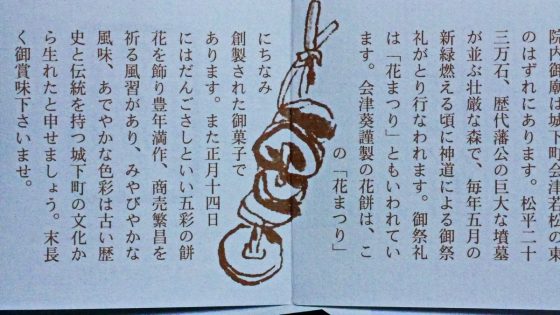 院内御廟は城下町会津若松の東
のはずれにあります。松平二十
三万石、歴代藩公の巨大な墳墓
が並ぶ壮厳な森で、毎年五月の
新緑燃える頃に神道による御祭
礼がとり行なわれます。御祭礼
は「花まつり」ともいわれてい
ます。会津葵謹製の花餅は、こ
の「花まつり」
にちなみ
創製された御菓子で
あります。また正月十四日
にはだんごさしといい五彩の餅
花を飾り豊年満作、商売繁昌を
祈る風習があり、みやびやかな
風味、あでやかな色彩は古い歴
史と伝統を持つ城下町の文化か
ら生れたと申せましょう。末長
く御賞味下さいませ。